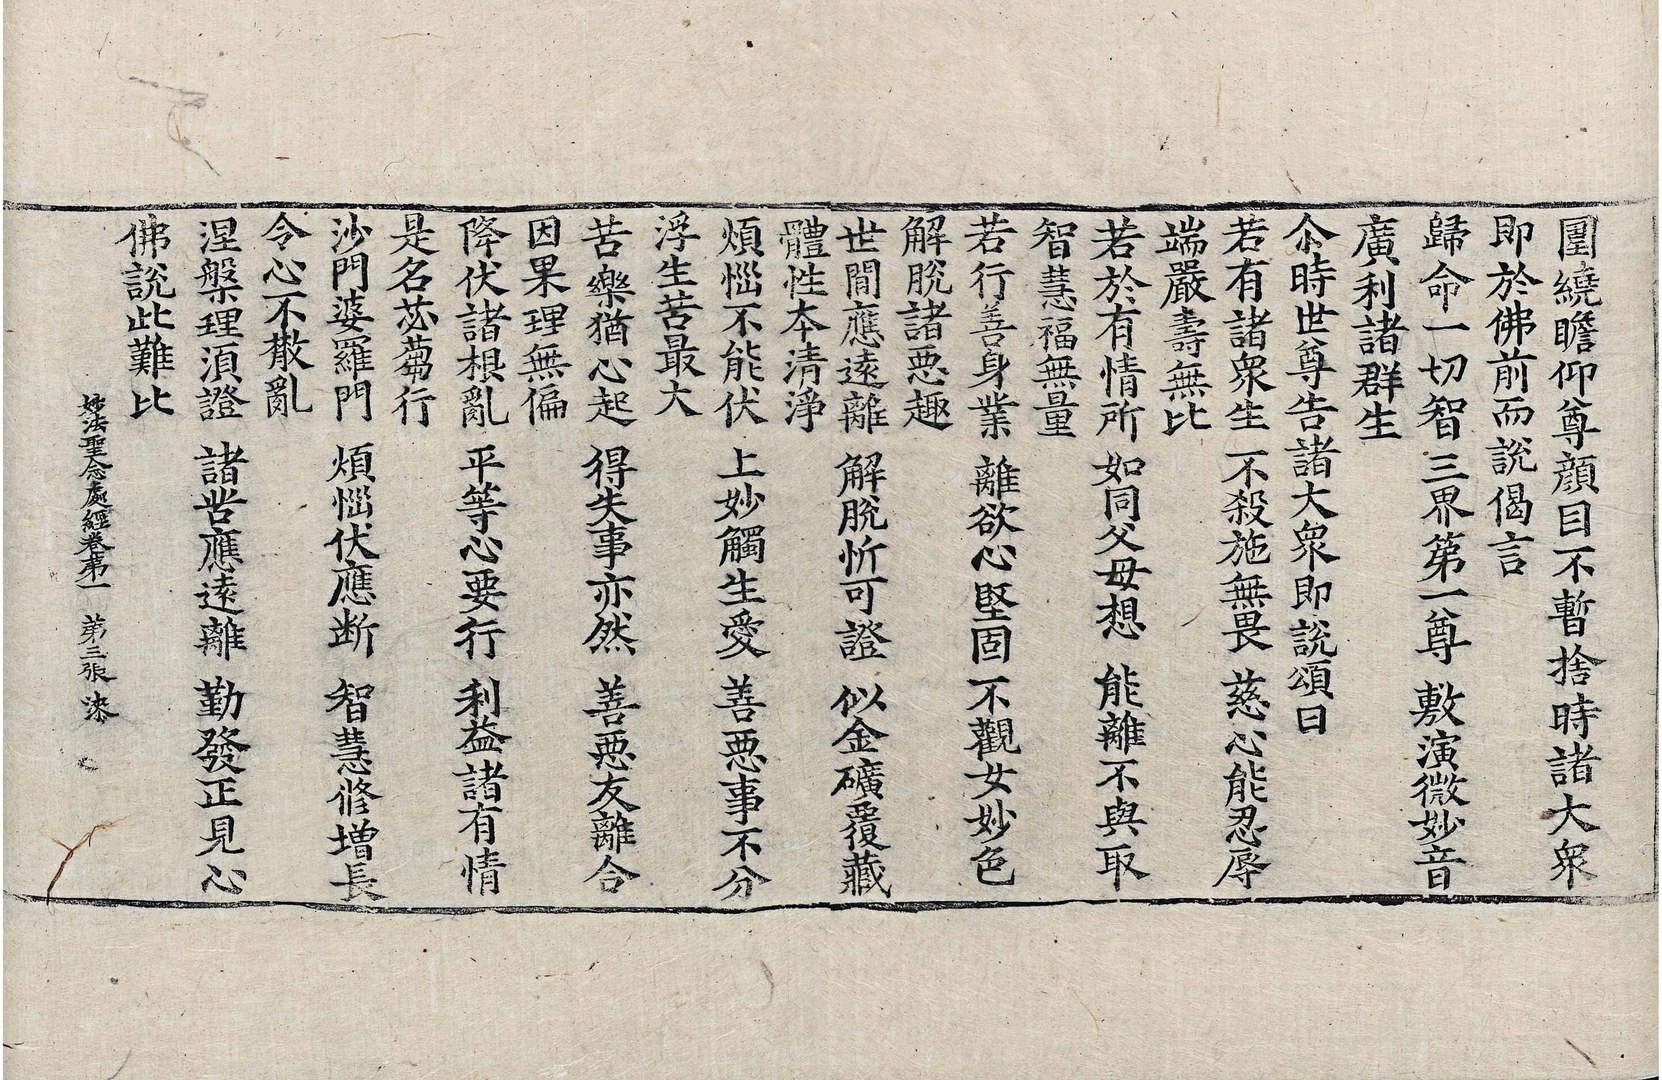 圍繞瞻仰尊顏目不暫捨時諸大衆
即於佛前而説偈言
歸命一切智 三界第一尊 敷演微妙音
廣利諸群生
尒時世尊告諸大衆即説頌曰
若有諸衆生 不殺施無畏 慈心能忍辱
端嚴壽無比
若於有情所 如同父母想 能離不與取
智慧福無量
若行善身業 離欲心堅固 不觀女妙色
解脱諸惡趣
世間應遠離 解脱忻可證 似金礦覆藏
體性本清淨
煩惱不能伏 上妙觸生愛 善惡事不分
浮生苦最大
苦樂猶心起 得失事亦然 善惡友離合
因果理無偏
降伏諸根亂 平等心要行 利益諸有情
是名苾蒭行
沙門婆羅門 煩惱伏應断 智慧修增長
令心不散亂
涅槃理湏證 諸苦應遠離 勤發正見心
佛説此難比
妙法聖念處經卷第一 第三張 漆